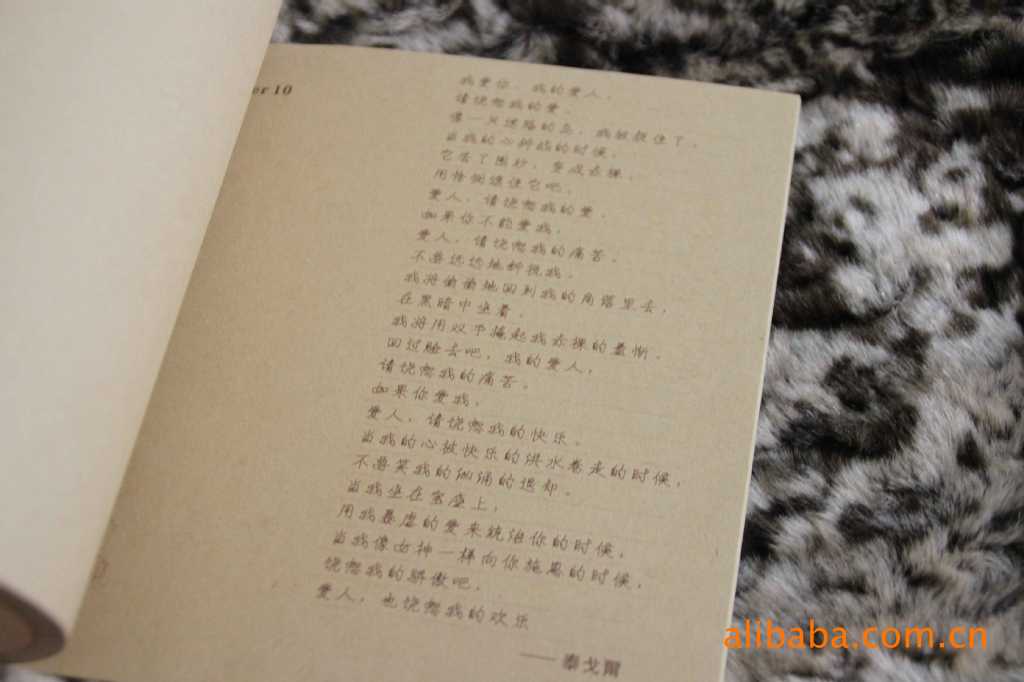 er 10
我爱你，我的爱人。
请饶恕我的爱。
像一只迷路的鸟，我被捉住了。
当我的心抖战的时候，
它丢了围纱，变成赤裸，
用怜悯遮住它吧。
爱人，请饶恕我的爱。
如果你不能爱我，
爱人，请饶恕我的痛苦。
不要远远地斜视我。
我将偷偷地回到我的角落里去，
在黑暗中坐着。
我将用双手掩起我赤裸的羞惭。
回过脸去吧，我的爱人，
请饶恕我的痛苦。
如果你爱我，
爱人，请饶恕我的快乐。
当我的心被快乐的洪水卷走的时候，
不要笑我的汹涌的退却。
当我坐在宝座上，
用我暴虐的爱来统治你的时候，
当我像女神一样向你施恩的时候，
饶恕我的骄傲吧，
爱人，也饶恕我的欢乐
——泰戈爾
alibaba.com.cn